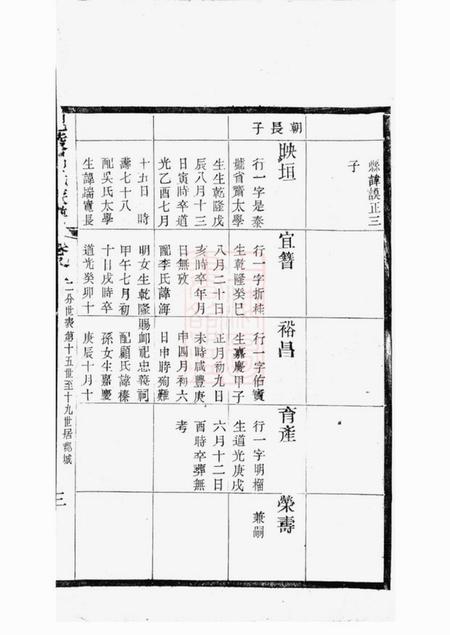 縣諱謨正三
子
朝長子
映垣
行一字是泰
號省齋太學
生生乾隆戊
辰八月十三
日寅時卒道
光乙酉七月
十五日 時
壽七十八
配吳氏太學
生諱端寶長
宜簪
行一字折桂
生乾隆癸巳
八月二十日
亥時卒年月
日無攷
配李氏諱海
明女生乾隆
甲午七月初
十日戌時卒
道光癸卯十
裕昌
行一字佑賓
生嘉慶甲子
正月初九日
未時咸豐庚
申四月初六
日申時殉難
賜卹祀忠義祠
配顧氏諱榛
孫女生嘉慶
庚辰十月十
育產
行一字明榴
生道光庚戌
六月十二日
酉時卒葬無
考
榮壽
兼嗣
二分世表第十五世至十九世居郡城
三